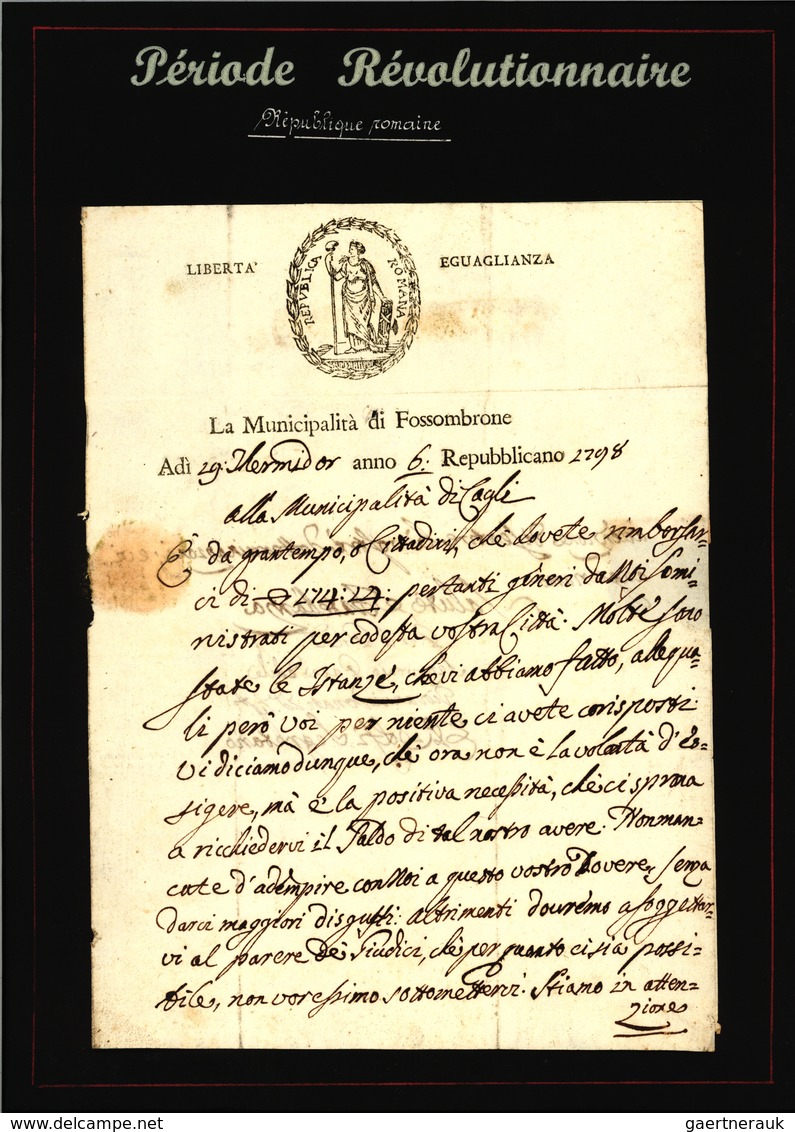 Période Révolutionnaire
République romaine
LIBERTA' EGUAGLIANZA
REPVBLICA ROMANA
La Municipalità di Fossombrone
Adì 29. Termidor anno 6. Repubblicano 1798
Alla Municipalità di Cagli
E' da gran tempo, o Cittadini, chè dovete rimborsar-
ci di 174:14: per tanti generi da Noi som͞i-
nistrati per codesta vostra Città. Moltè sono
state le Istanzè, che vi abbiamo fatto, alle qua-
li però voi per niente ci avete corisposti:
Vi diciamo dunque, chè ora non è la volontà d'è-
sigere, mà è la positiva necessità, chè ci sprona
a ricchiedervi il Saldo di tal nostro avere. Non man=
cate d'adempire con Noi a questo vostro Dovere, senza
darci maggiori disgusti: altrimenti dourémo assoggettar-
vi al parere dè Giudici, chè per quanto ci sia possi-
bile, non voressimo sottomettervi. Stiamo in atten=
zione
gaertnerauk
delcampe.net